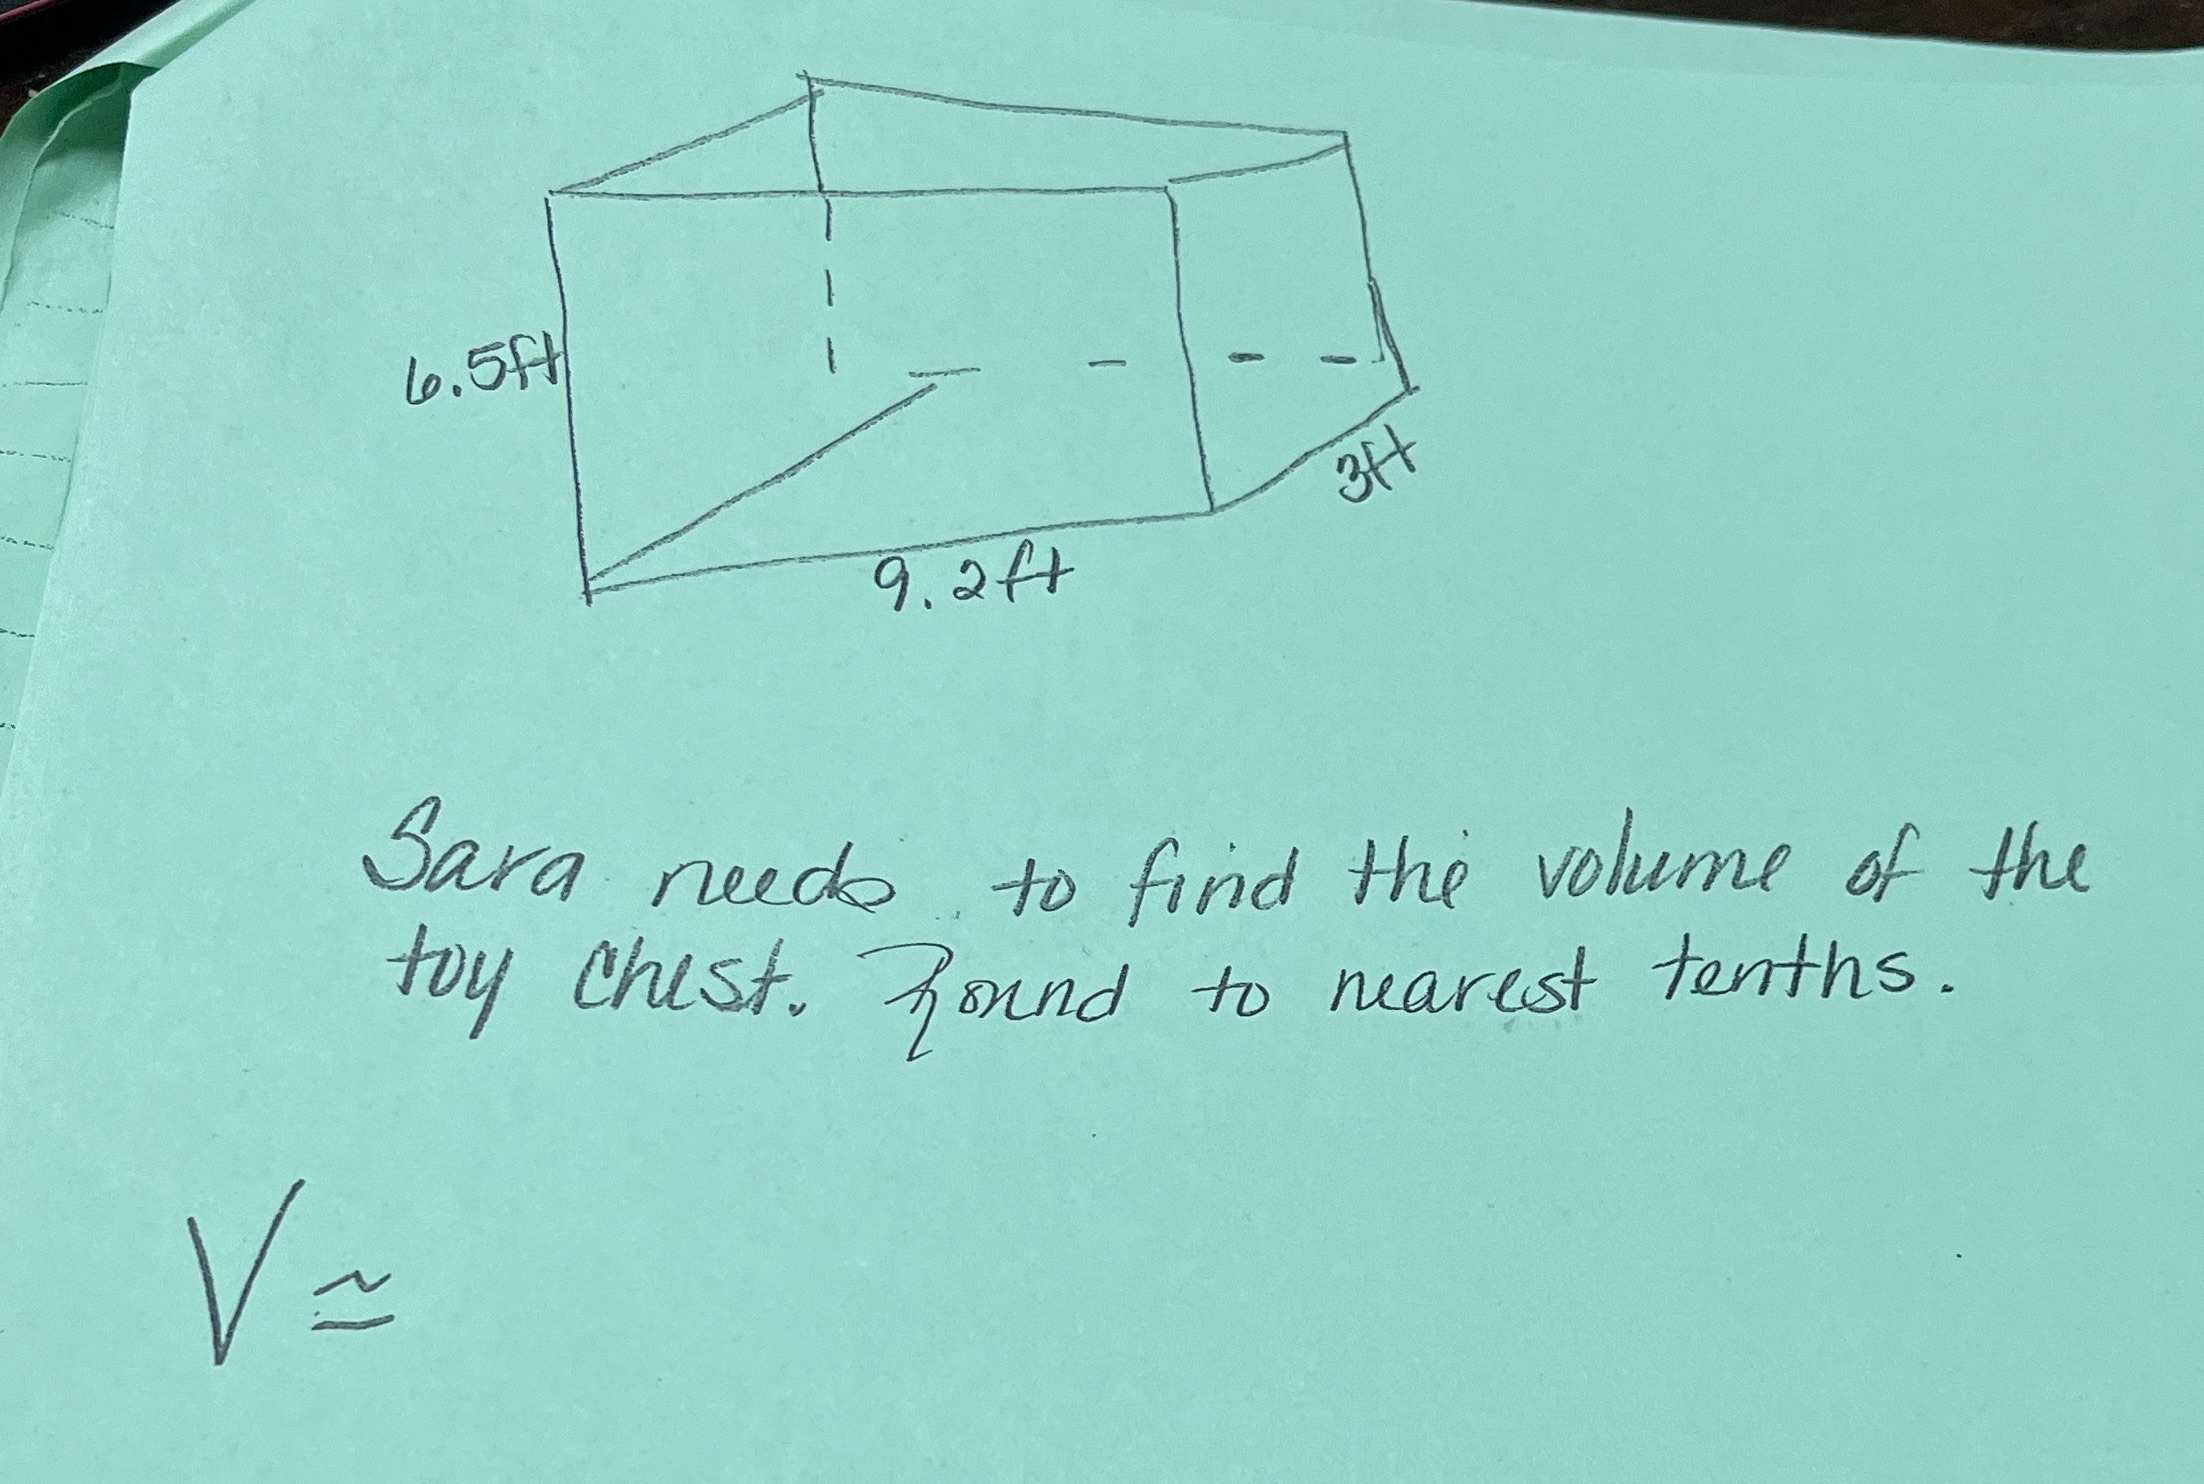 6.5ft
3ft
9.2ft
Sara needs to find the volume of the
toy chest. Round to nearest tenths.
V ≃